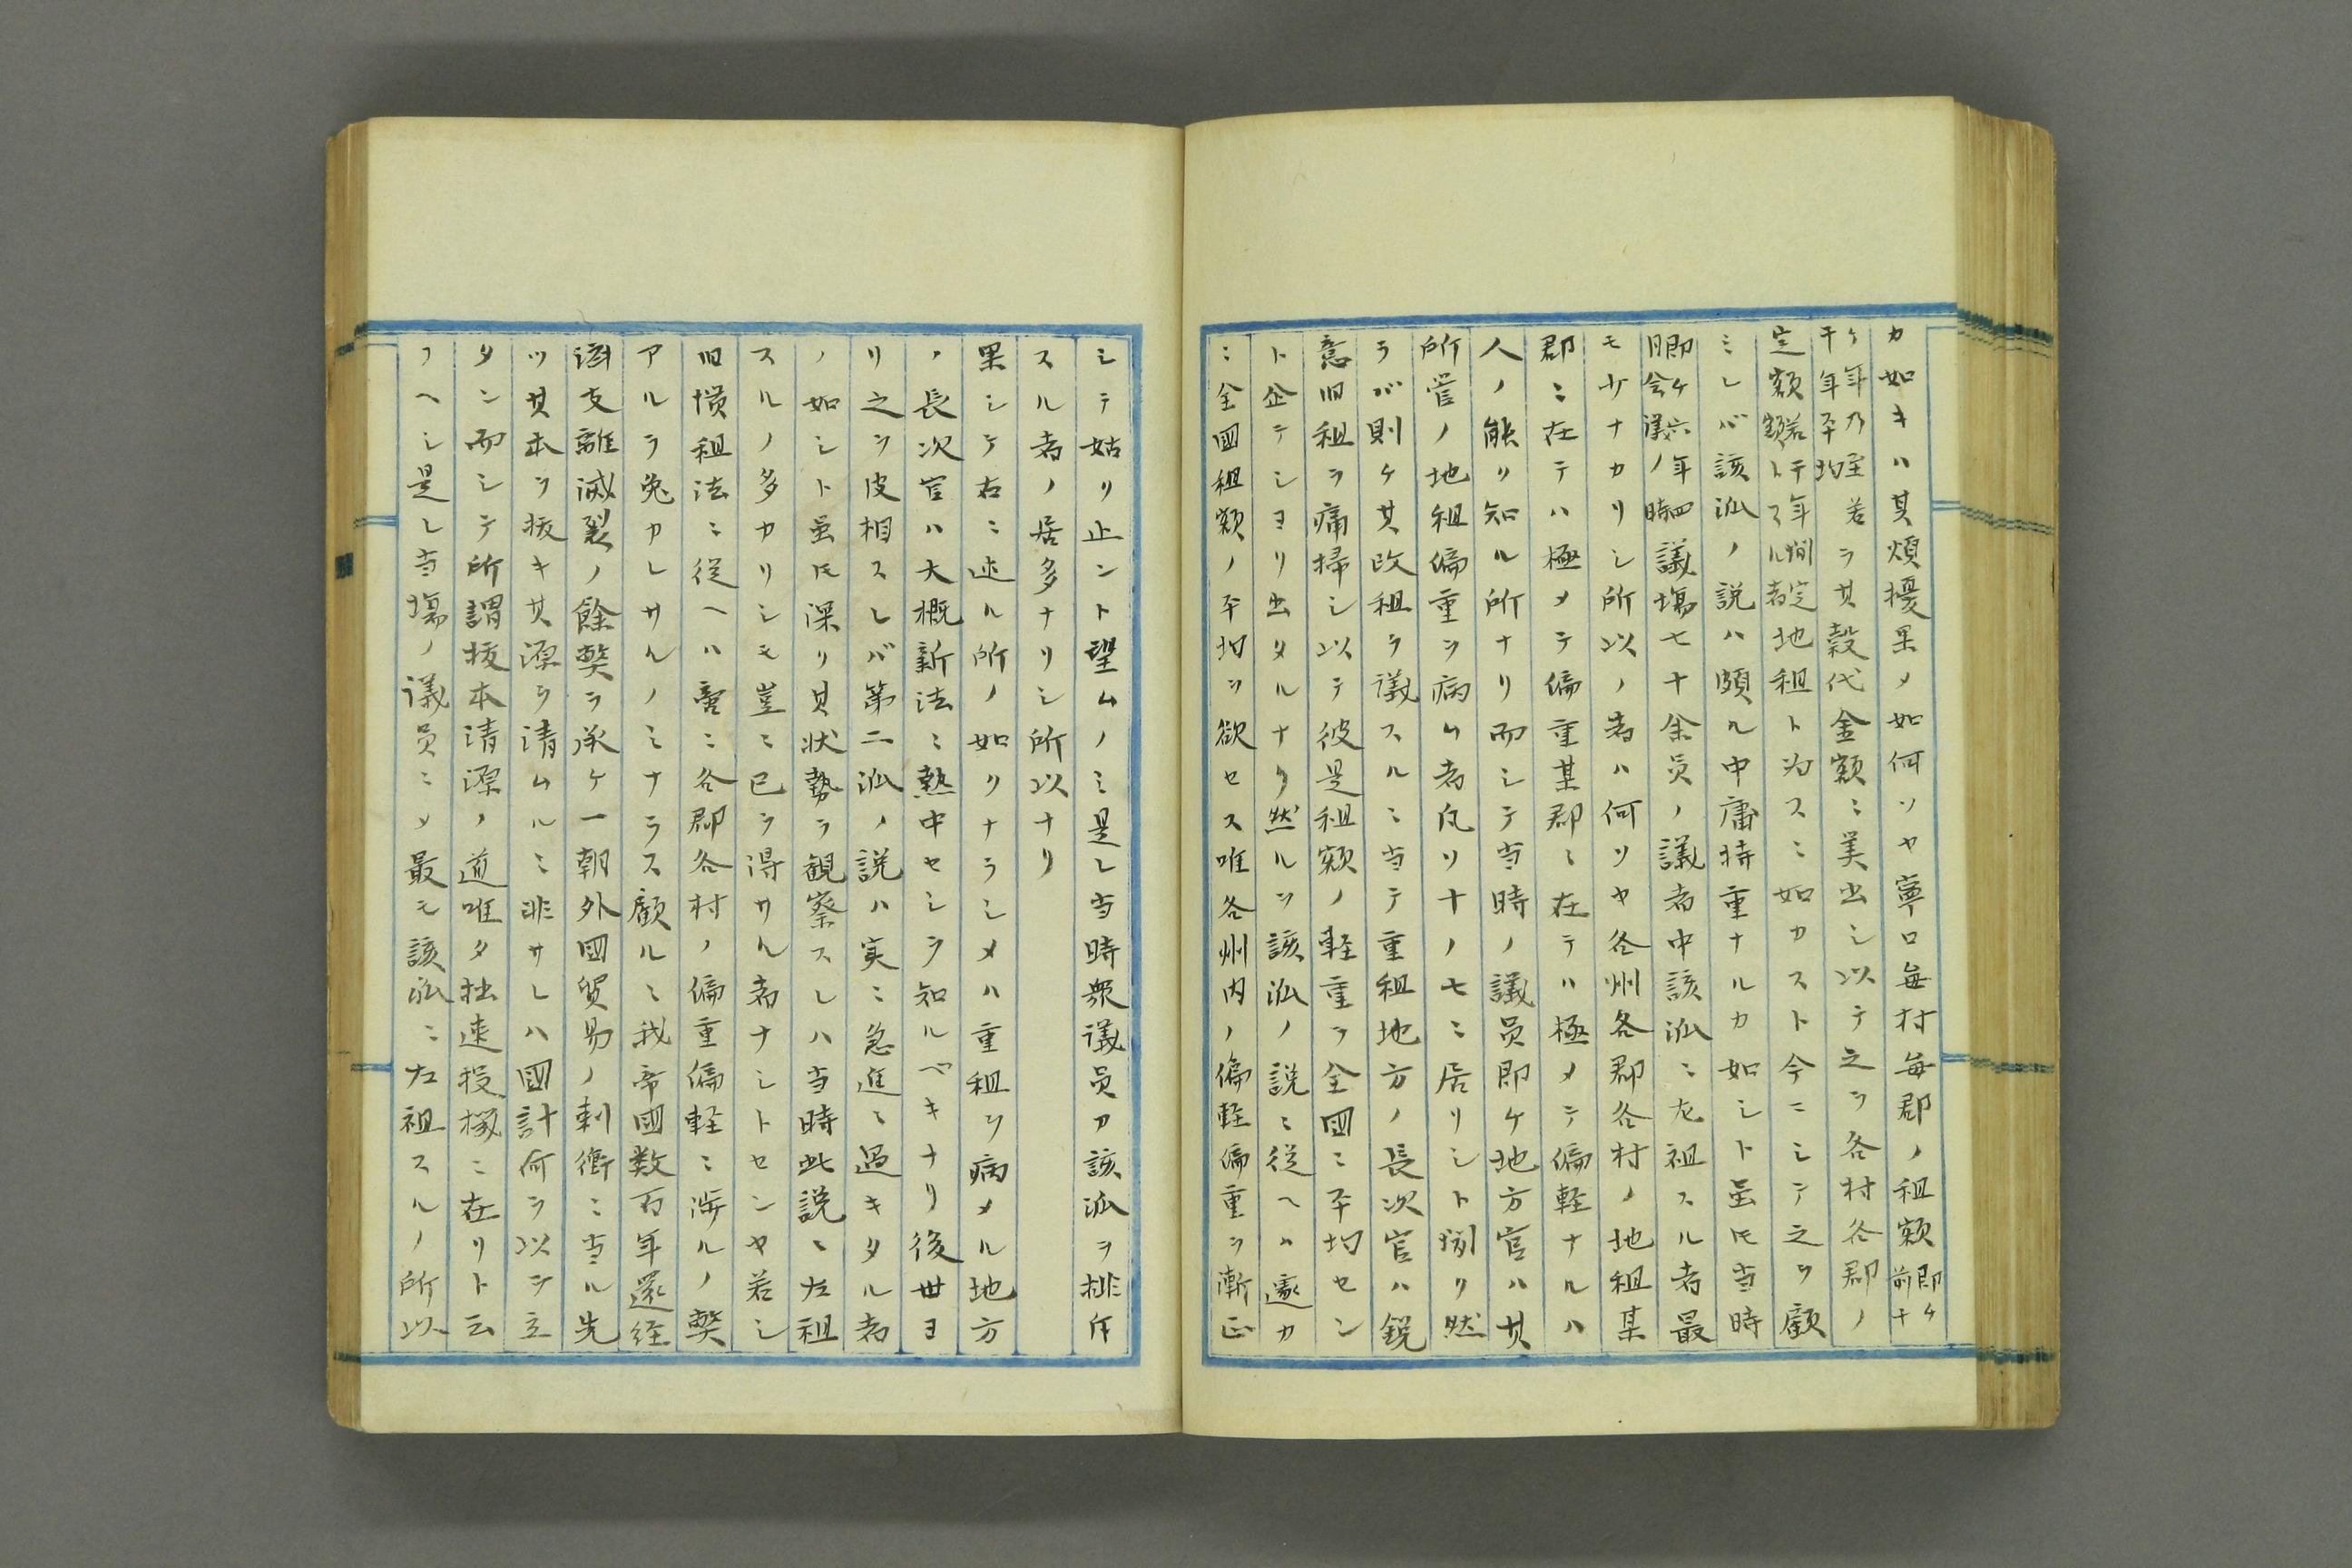 カ如キハ其煩擾果メ如何ソヤ寧ロ毎村毎郡ノ租額即ケ前十
ケ年乃至若干年平均ラ其穀代金額ニ美出シ以テ之ラ各村各郡ノ
定額若干年間定額トスル者地租ト為スニ如カスト今ニシテ之ヲ顧
ミレバ該派ノ説ハ頗ル中庸持重ナルカ如シト虽氏当時
即ケ六年四月会議ノ時議塲七十余員ノ議者中該派ニ左袒スル者最
モ少ナカリシ所以ノ者ハ何ソヤ各州各郡各村ノ地租某
郡ニ在テハ極メテ偏重某郡ニ在テハ極メテ偏軽ナルハ
人ノ能ク知ル所ナリ而シテ当時ノ議員即ケ地方官ハ其
所管ノ地租偏重ヲ病ム者凡ソ十ノ七ニ居リシト聞ク然
ラバ則ケ其改租ラ議スルニ当テ重租地方ノ長次官ハ鋭
意旧租ラ痛掃シ以テ彼是租額ノ軽重ヲ全國ニ平均セン
ト企テシヨリ出タルナリ然ルヲ該派ノ説ニ従ヘハ遽カ
ニ全國租額ノ平均ヲ欲セス唯各州内ノ偏軽偏重ヲ漸正
シテ姑ク止ント望ムノミ是レ当時衆議員カ該派ヲ排斥
スル者ノ居多ナリシ所以ナリ
果シテ右ニ述ル所ノ如クナラシメハ重租ヲ病メル地方
ノ長次官ハ大概新法ニ熱中セシヲ知ルベキナリ後世ヨ
リ之ヲ皮相スレバ第二派ノ説ハ実ニ急進ニ過キタル者
ノ如シト虽氏深ク其状勢ラ観察スレハ当時此説ニ左袒
スルノ多カリシモ豈ニ已ラ得サル者ナシトセンヤ若シ
旧慣租法ニ従ヘハ啻ニ各郡各村ノ偏重偏軽ニ渉ルノ弊
アルラ免カレサルノミナラス顧ルニ我帝國数百年還経
済支離滅裂ノ餘弊ラ承ケ一朝外國貿易ノ刺衝ニ当ル先
ツ其本ヲ抜キ其源ラ清ムルニ非サレハ國計何ヲ以テ立
タン而シテ所謂抜本清源ノ道唯タ拙速投機ニ在リト云
フヘシ是レ当塲ノ議員ニメ最モ該派ニ左袒スルノ所以